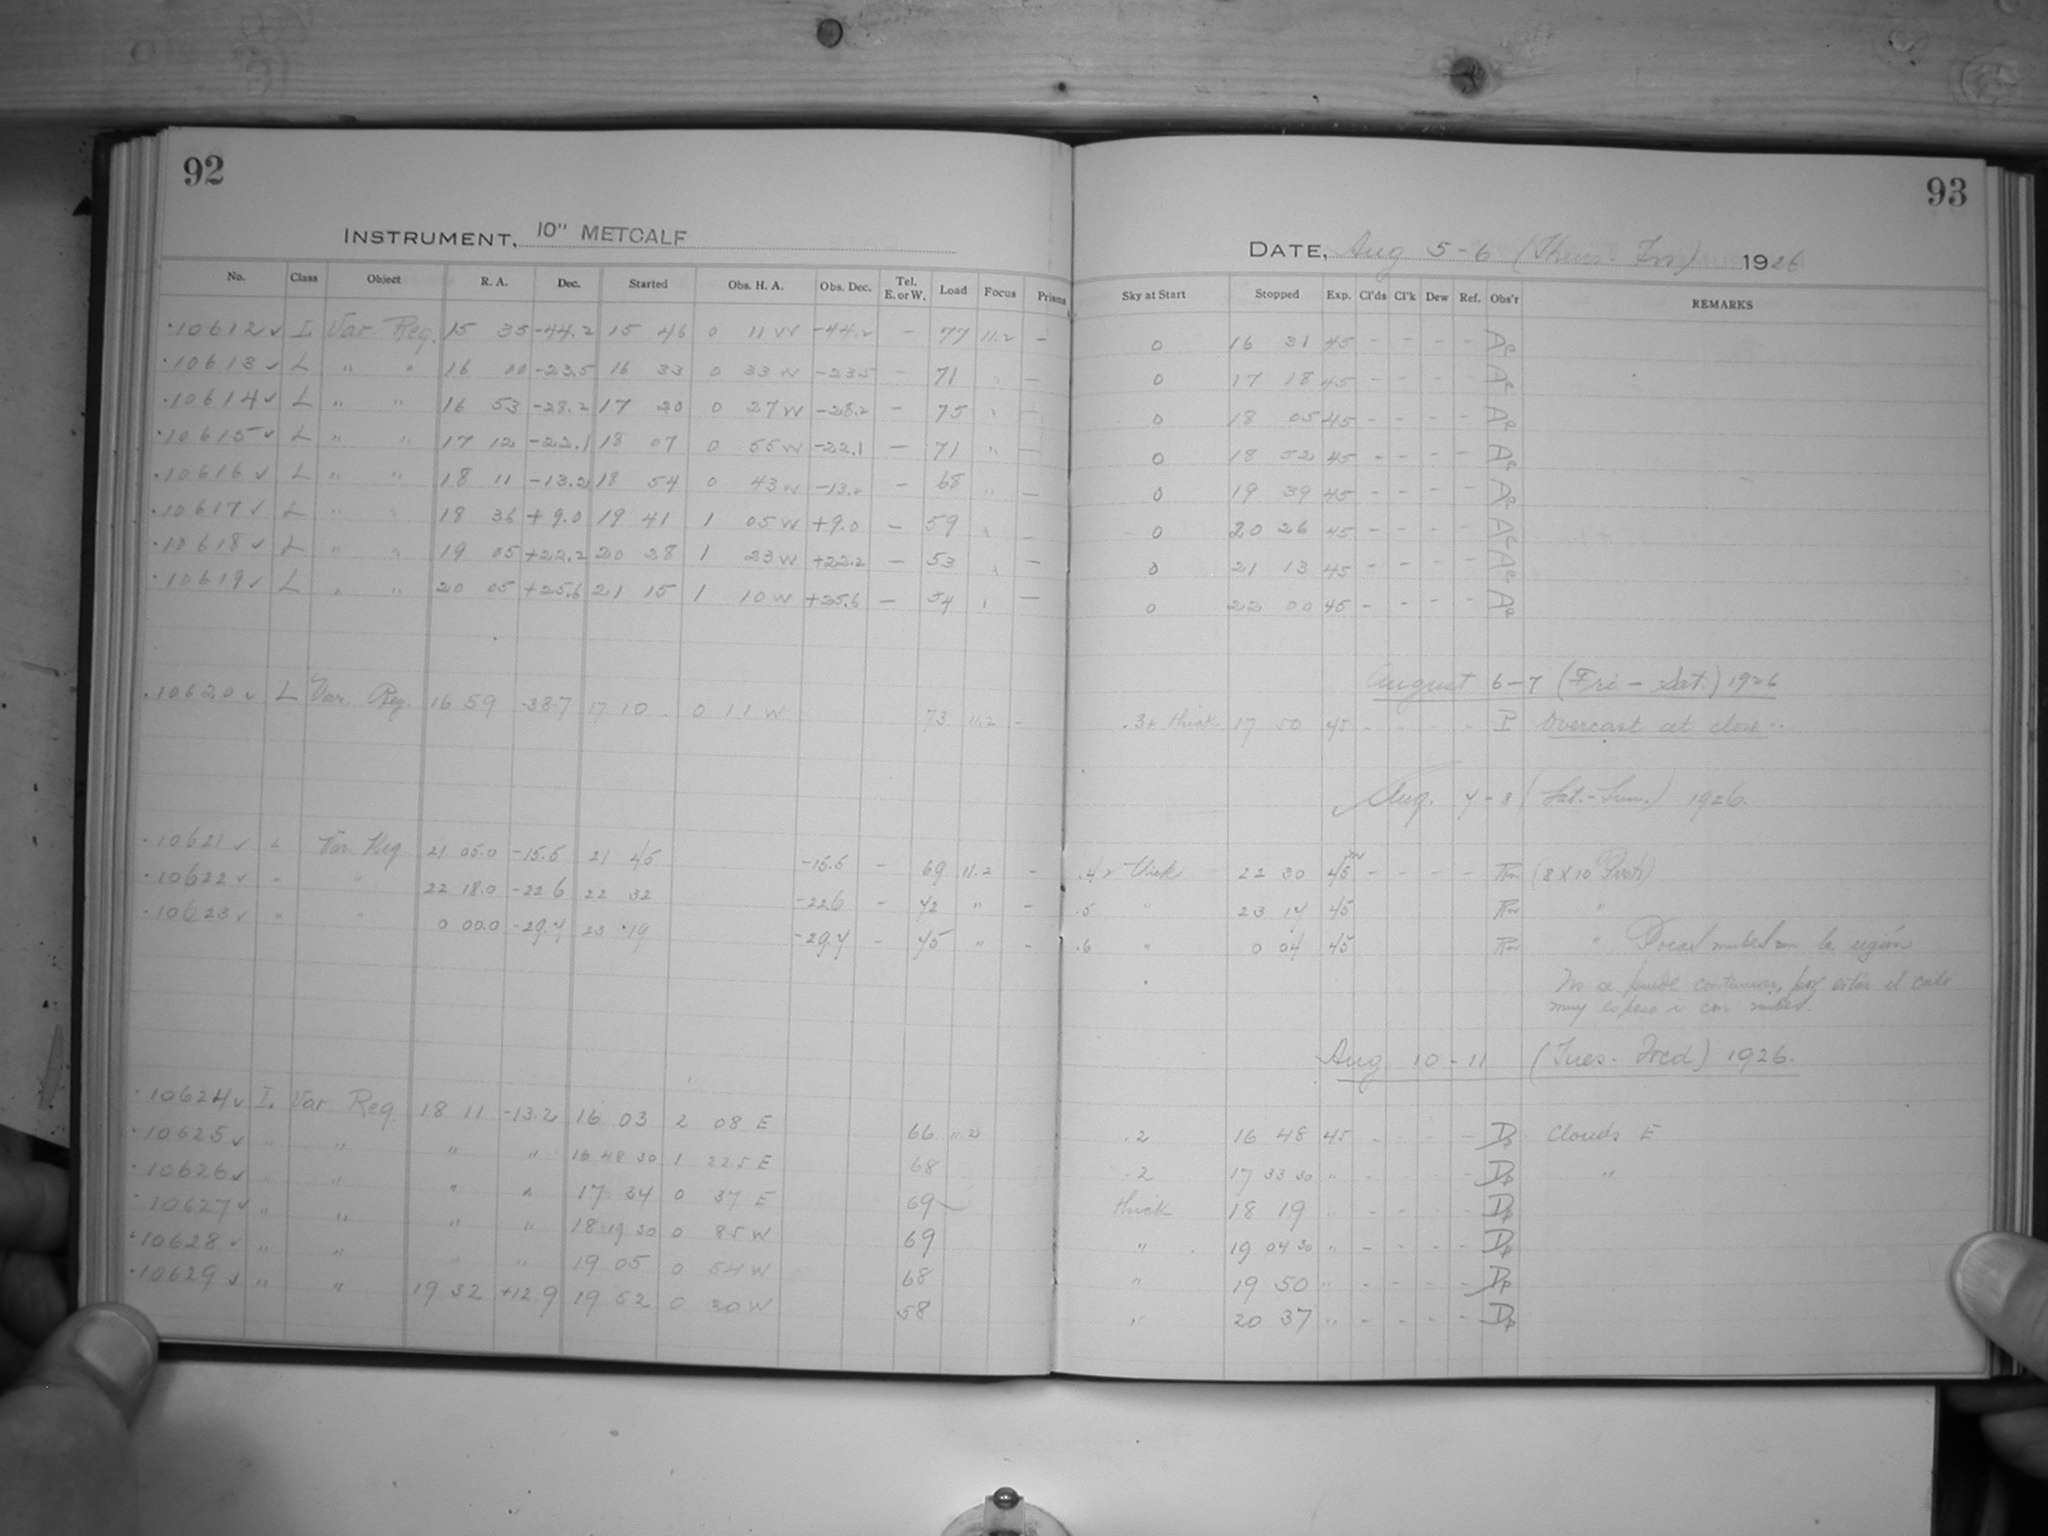 92
INSTRUMENT, 10" METCALF
No. Class Object R. A. Dec. Started Obs. H. A. Obs. Dec. Tel. E. or W. Load Focus Prisms
10612 ✓ I Var Reg. 15 35 -44.2 15 46 0 11 W -44.2 - 77 11.2 -
10613 ✓ L " " 16 00 -23.5 16 33 0 33 W -23.5 - 71 " -
10614 ✓ L " " 16 53 -28.2 17 20 0 27 W -28.2 - 75 " -
10615 ✓ L " " 17 12 -22.1 18 07 0 55 W -22.1 - 71 " -
10616 ✓ L " " 18 11 -13.2 18 54 0 43 W -13.2 - 68 " -
10617 ✓ L " " 18 36 +9.0 19 41 1 05 W +9.0 - 59 " -
10618 ✓ L " " 19 05 +22.2 20 28 1 23 W +22.2 - 53 " -
10619 ✓ L " " 20 05 +25.6 21 15 1 10 W +25.6 - 54 " -
10620 ✓ L Var. Reg. 16 59 -38.7 17 10 0 11 W 73 11.2 -
10621 ✓ L Var. Reg. 21 05.0 -15.5 21 45 -15.5 - 69 11.2 -
10622 ✓ " " 22 18.0 -22.6 22 32 -22.6 - 42 " -
10623 ✓ " " 0 00.0 -29.4 23 19 -29.4 - 45 " -
10624 ✓ I. Var Reg 18 11 -13.2 16 03 2 08 E 66 11 2
10625 ✓ " " " " 16 48 30 1 22 5 E 68
10626 ✓ " " " " 17 34 0 37 E 69
10627 ✓ " " " " 18 19 30 0 8 5 W 69
10628 ✓ " " " " 19 05 0 54 W 68
10629 ✓ " " 19 32 +12 9 19 52 0 20 W 58
93
DATE, Aug 5-6 (Thurs - Fri) 1926
Sky at Start Stopped Exp. Cl'ds Cl'k Dew Ref. Obs'r REMARKS
0 16 31 45 - - - -
0 17 18 45 - - - -
0 18 05 45 - - - -
0 18 52 45 - - - -
0 19 39 45 - - - -
0 20 26 45 - - - -
0 21 13 45 - - - -
0 22 00 45 - - - -
August 6-7 (Fri - Sat.) 1926
.3+ thick 17 50 45 - - - - Overcast at close
Aug. 7-8 (Sat.-Sun.) 1926.
.4 thick 22 30 45 m - - - - (8 x 10
.5 " 23 17 45 "
.6 " 0 04 45 " la región
No se puede continuar, por estar el cielo
muy espeso i con nubes.
Aug 10-11 (Tues- Wed) 1926.
.2 16 48 45 - - - - Clouds E
.2 17 33 30 " - - - - "
thick 18 19 " - - - -
" 19 04 30 " - - - -
" 19 50 " - - - -
" 20 37 " - - - -